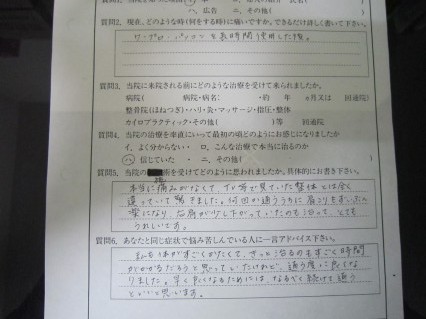 ハ、広告　ニ、その他(
質問2. 現在、どのような時(何をする時)に痛いですか。できるだけ詳しく書いて下さい。
ワープロ・パソコンを長時間使用した後。
質問3. 当院に来院される前にどのような治療を受けて来られましたか。
病院(　病院・病名:　・約　年　ヵ月又は　回通院
整骨院(ほねつぎ)・ハリ・灸・マッサージ・指圧・整体
カイロプラクティック・その他(　)等　回通院
質問4. 当院の治療を率直にいって最初の頃どのようにお感じになりましたか
イ、よく分からない・ロ、こんな治療で本当に治るのか
ハ、信じていた・ニ、その他(
質問5. 当院の 術を受けてどのように思われましたか。具体的にお書き下さい。
本当に痛みがなくて、TV等で見ていた整体とは全く
違っていて驚きました。何回か通ううちに肩こりもずいぶん
楽になり、右肩が少し下がっていたのも治って、とても
うれしいです。
質問6. あなたと同じ症状で悩み苦しんでいる人に一言アドバイス下さい。
私も体がすごくかたくて、きっと治るのもすごく時間
がかかるだろうと思っていたけれど、通う度に良くな
りました。早く良くなるためには、なるべく続けて通う
といいと思います。